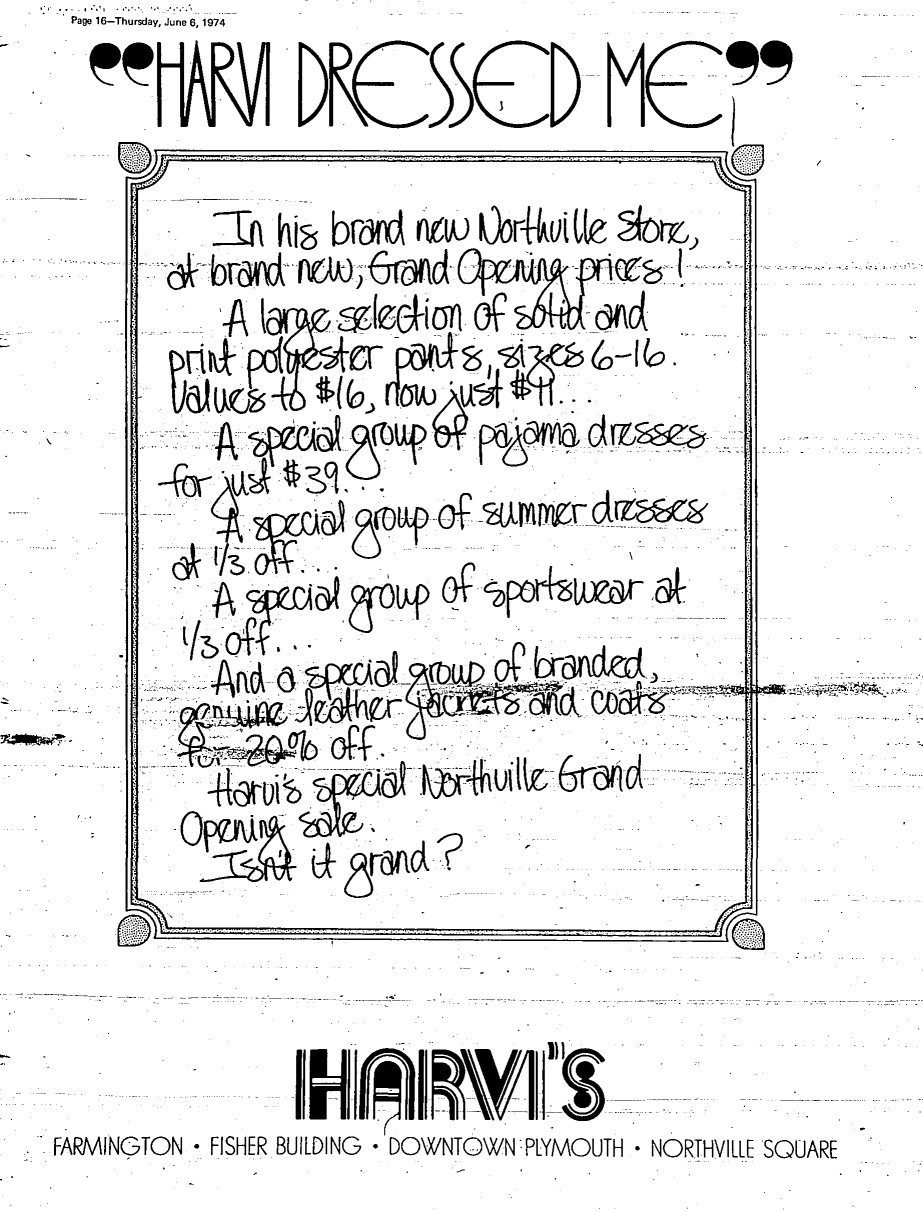 Page 16—Thursday, June 6, 1974
"HARVI DRESSED ME"
In his brand new Northville Store,
at brand new, Grand Opening prices!
A large selection of solid and
print polyester pants, sizes 6-16.
Values to $16, now just $11...
A special group of pajama dresses
for just $39...
A special group of summer dresses
at 1/3 off...
A special group of sportswear at
1/3 off...
And a special group of branded,
genuine leather jackets and coats
for 20% off.
Harvi's special Northville Grand
Opening sale.
Isn't it grand?
HARVI'S
FARMINGTON • FISHER BUILDING • DOWNTOWN PLYMOUTH • NORTHVILLE SQUARE